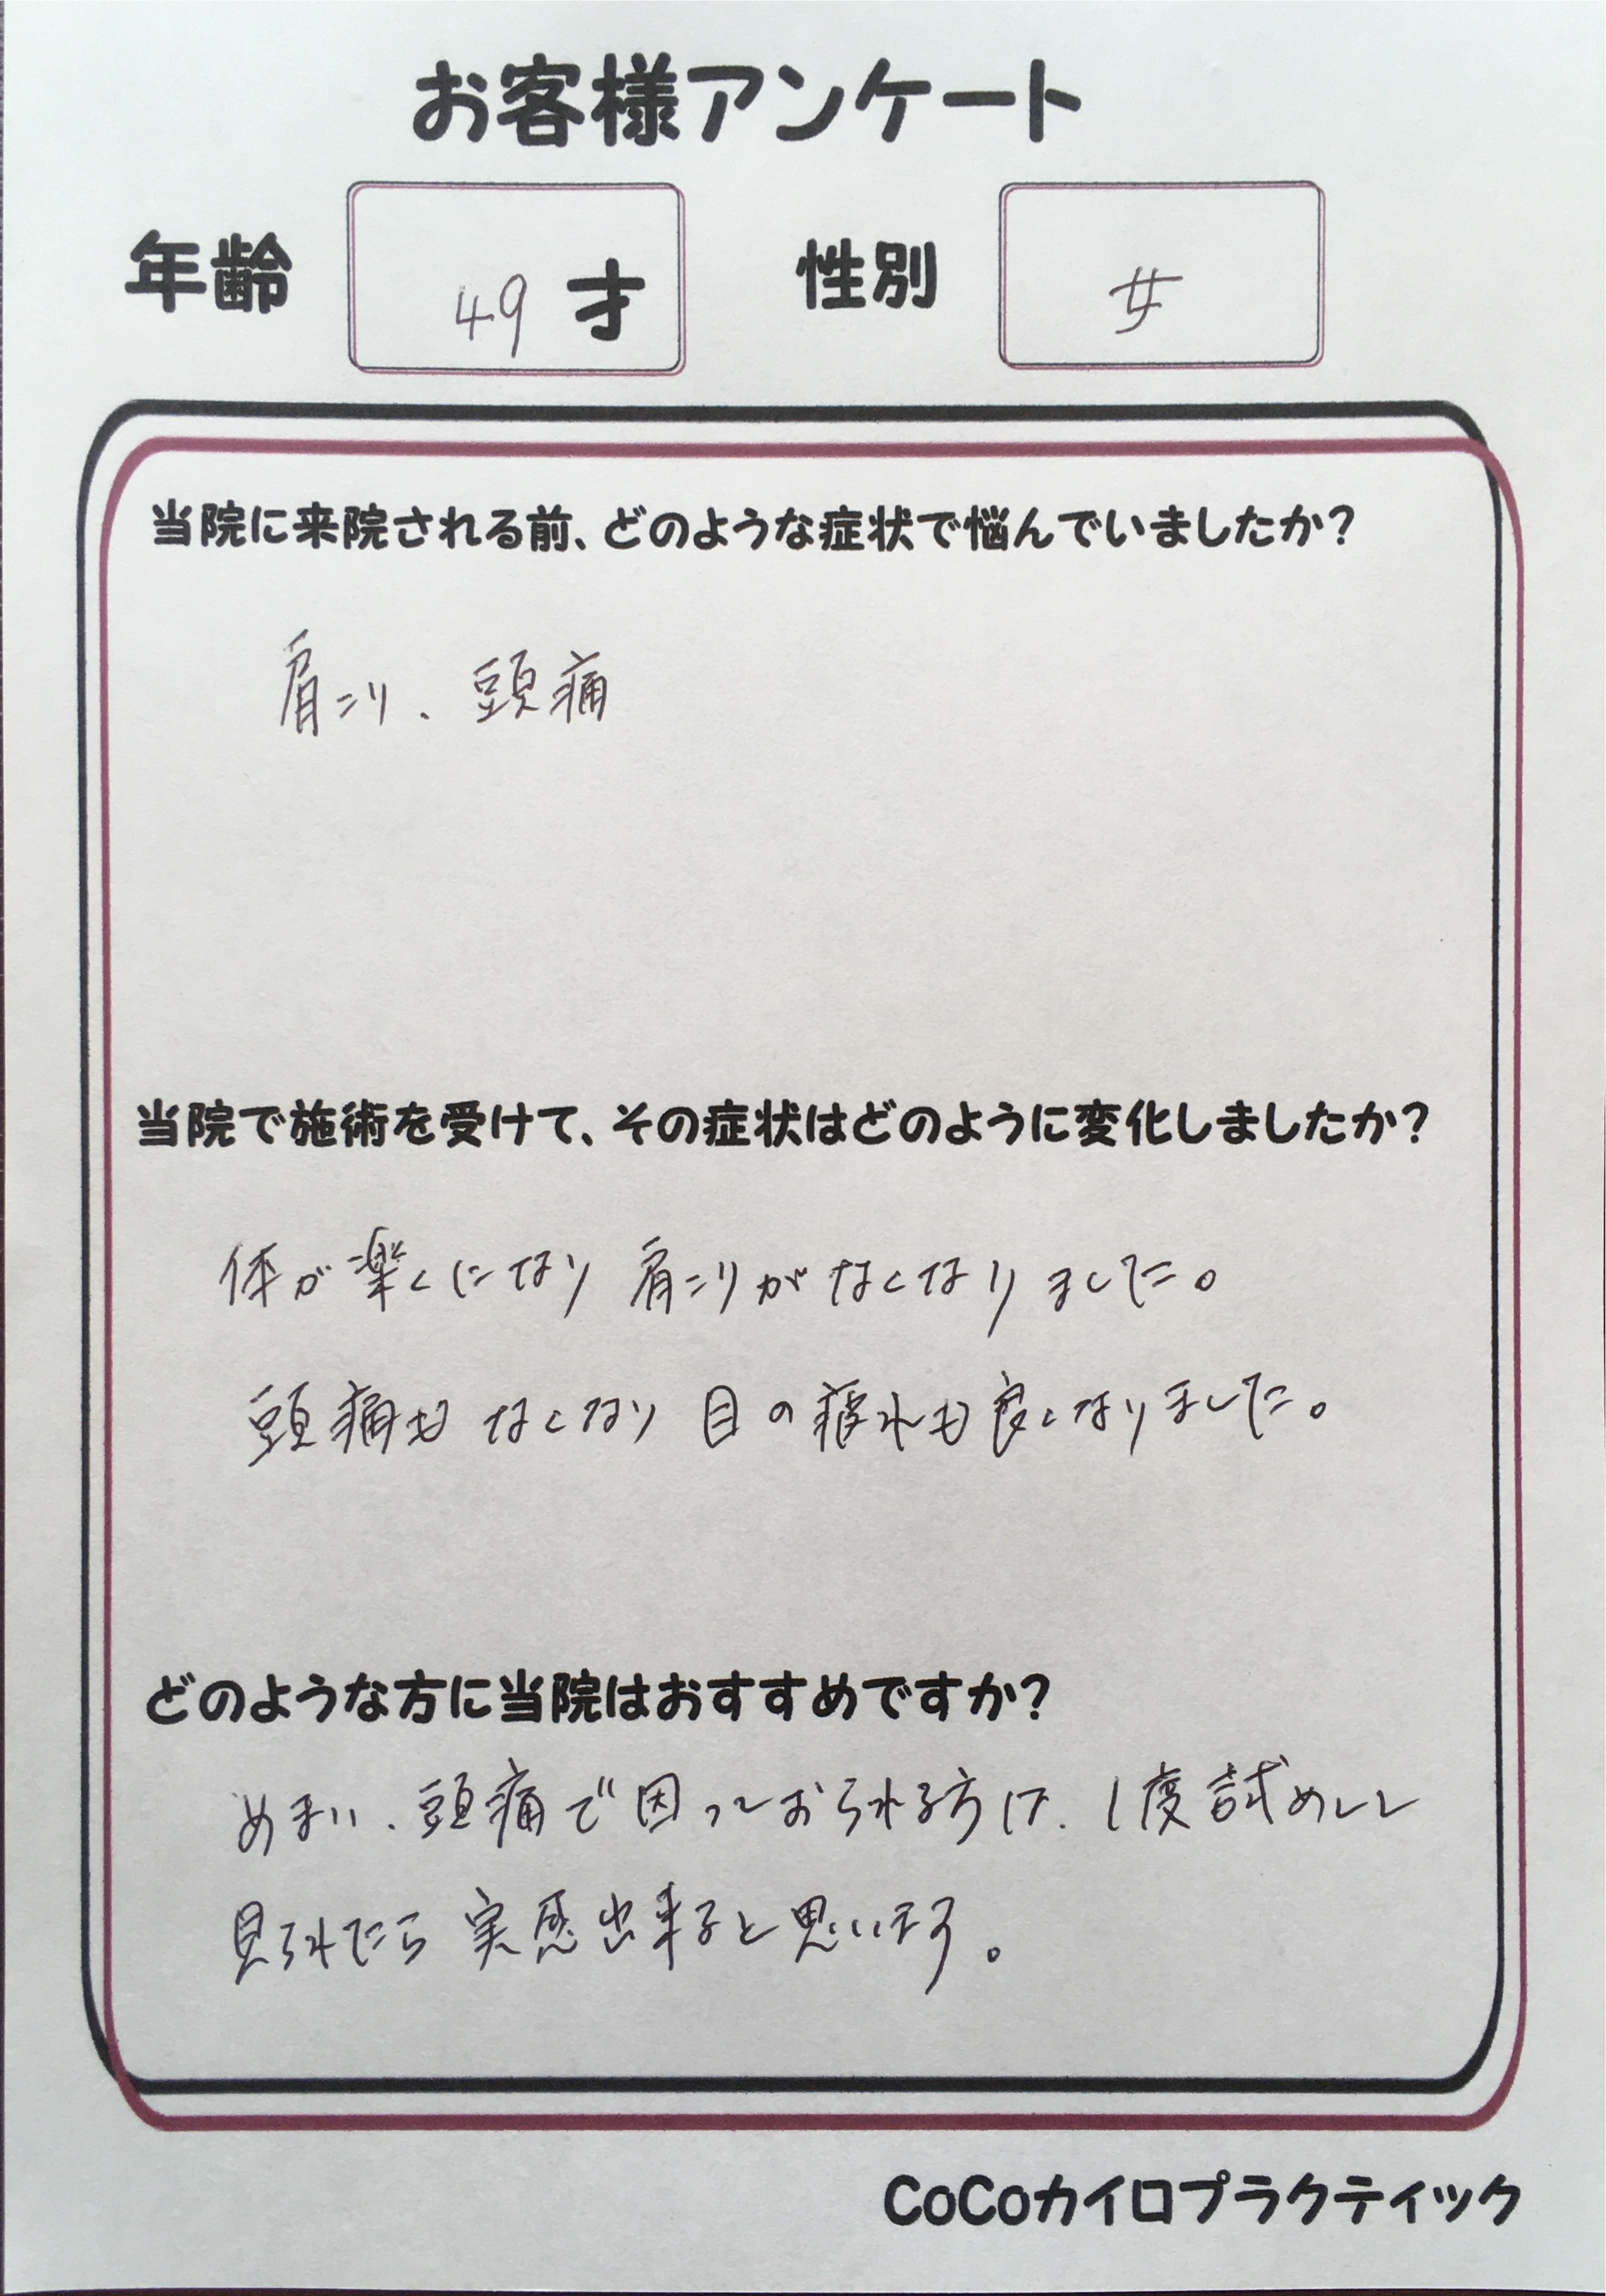 お客様アンケート
年齢 49才 性別 女
当院に来院される前、どのような症状で悩んでいましたか?
肩こり、頭痛
当院で施術を受けて、その症状はどのように変化しましたか?
体が楽くになり 肩こりがなくなりました。
頭痛も なくなり 目の疲れも良くなりました。
どのような方に当院はおすすめですか?
めまい、頭痛で困っておられる方は、1度試めしに
見られたら 実感出来ると思います。
CoCoカイロプラクティック